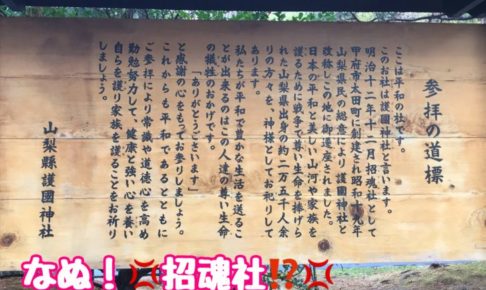 参拝の道標
ここは平和の社です。
このお社は護國神社と言います。
明治十二年十一月招魂社として
甲府市太田町に創建され昭和十九年
山梨県民の総意により護國神社と
改称しこの地に御遷座されました。
日本の平和と美しい山河や家族を
護るために戦争で尊い生命を捧げら
れた山梨県出身の約二万五千人余
りの方々を、神様としてお祀りして
あります。
私たちが平和で豊かな生活を送るこ
とが出来るのはこの人達の尊い生命
の犠牲のおかげです。
「ありがとうございます」
と感謝の心をもってお参りしましょう。
これからも平和であるとともに
ご参拝により常識や道徳心を高め
勤勉努力して、健康と強い心を養い
自らを護り家族を護ることをお祈り
しましょう。
山梨縣護國神社
なぬ！💢招魂社⁉️💢